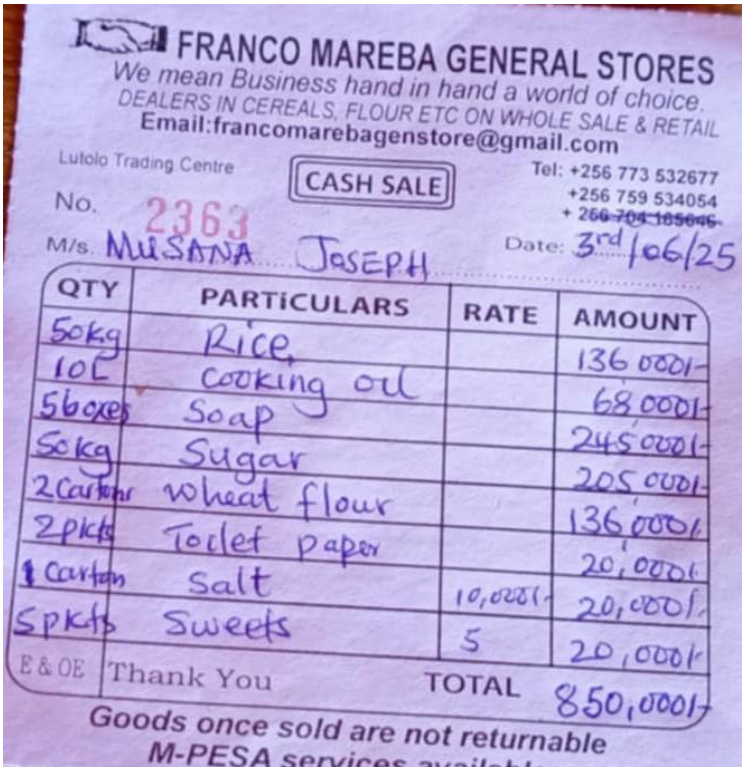 FRANCO MAREBA GENERAL STORES
We mean Business hand in hand a world of choice.
DEALERS IN CEREALS, FLOUR ETC ON WHOLE SALE & RETAIL
Email:francomarebagenstore@gmail.com
Lutolo Trading Centre
CASH SALE
Tel: +256 773 532677
+256 759 534054
+ 256 704 165646
No. 2363
M/s. MUSANA JOSEPH Date: 3rd/06/25
QTY PARTICULARS RATE AMOUNT
50kg Rice 136000/-
10L cooking oil 68000/-
5boxes Soap 245000/-
50kg Sugar 205000/-
2 Cartons wheat flour 136,000/-
2pkts Toilet paper 20,000/-
1 Carton Salt 10,000/- 20,000/-
5pkts Sweets 5 20,000/-
E & OE Thank You TOTAL 850,000/-
Goods once sold are not returnable
M-PESA services available